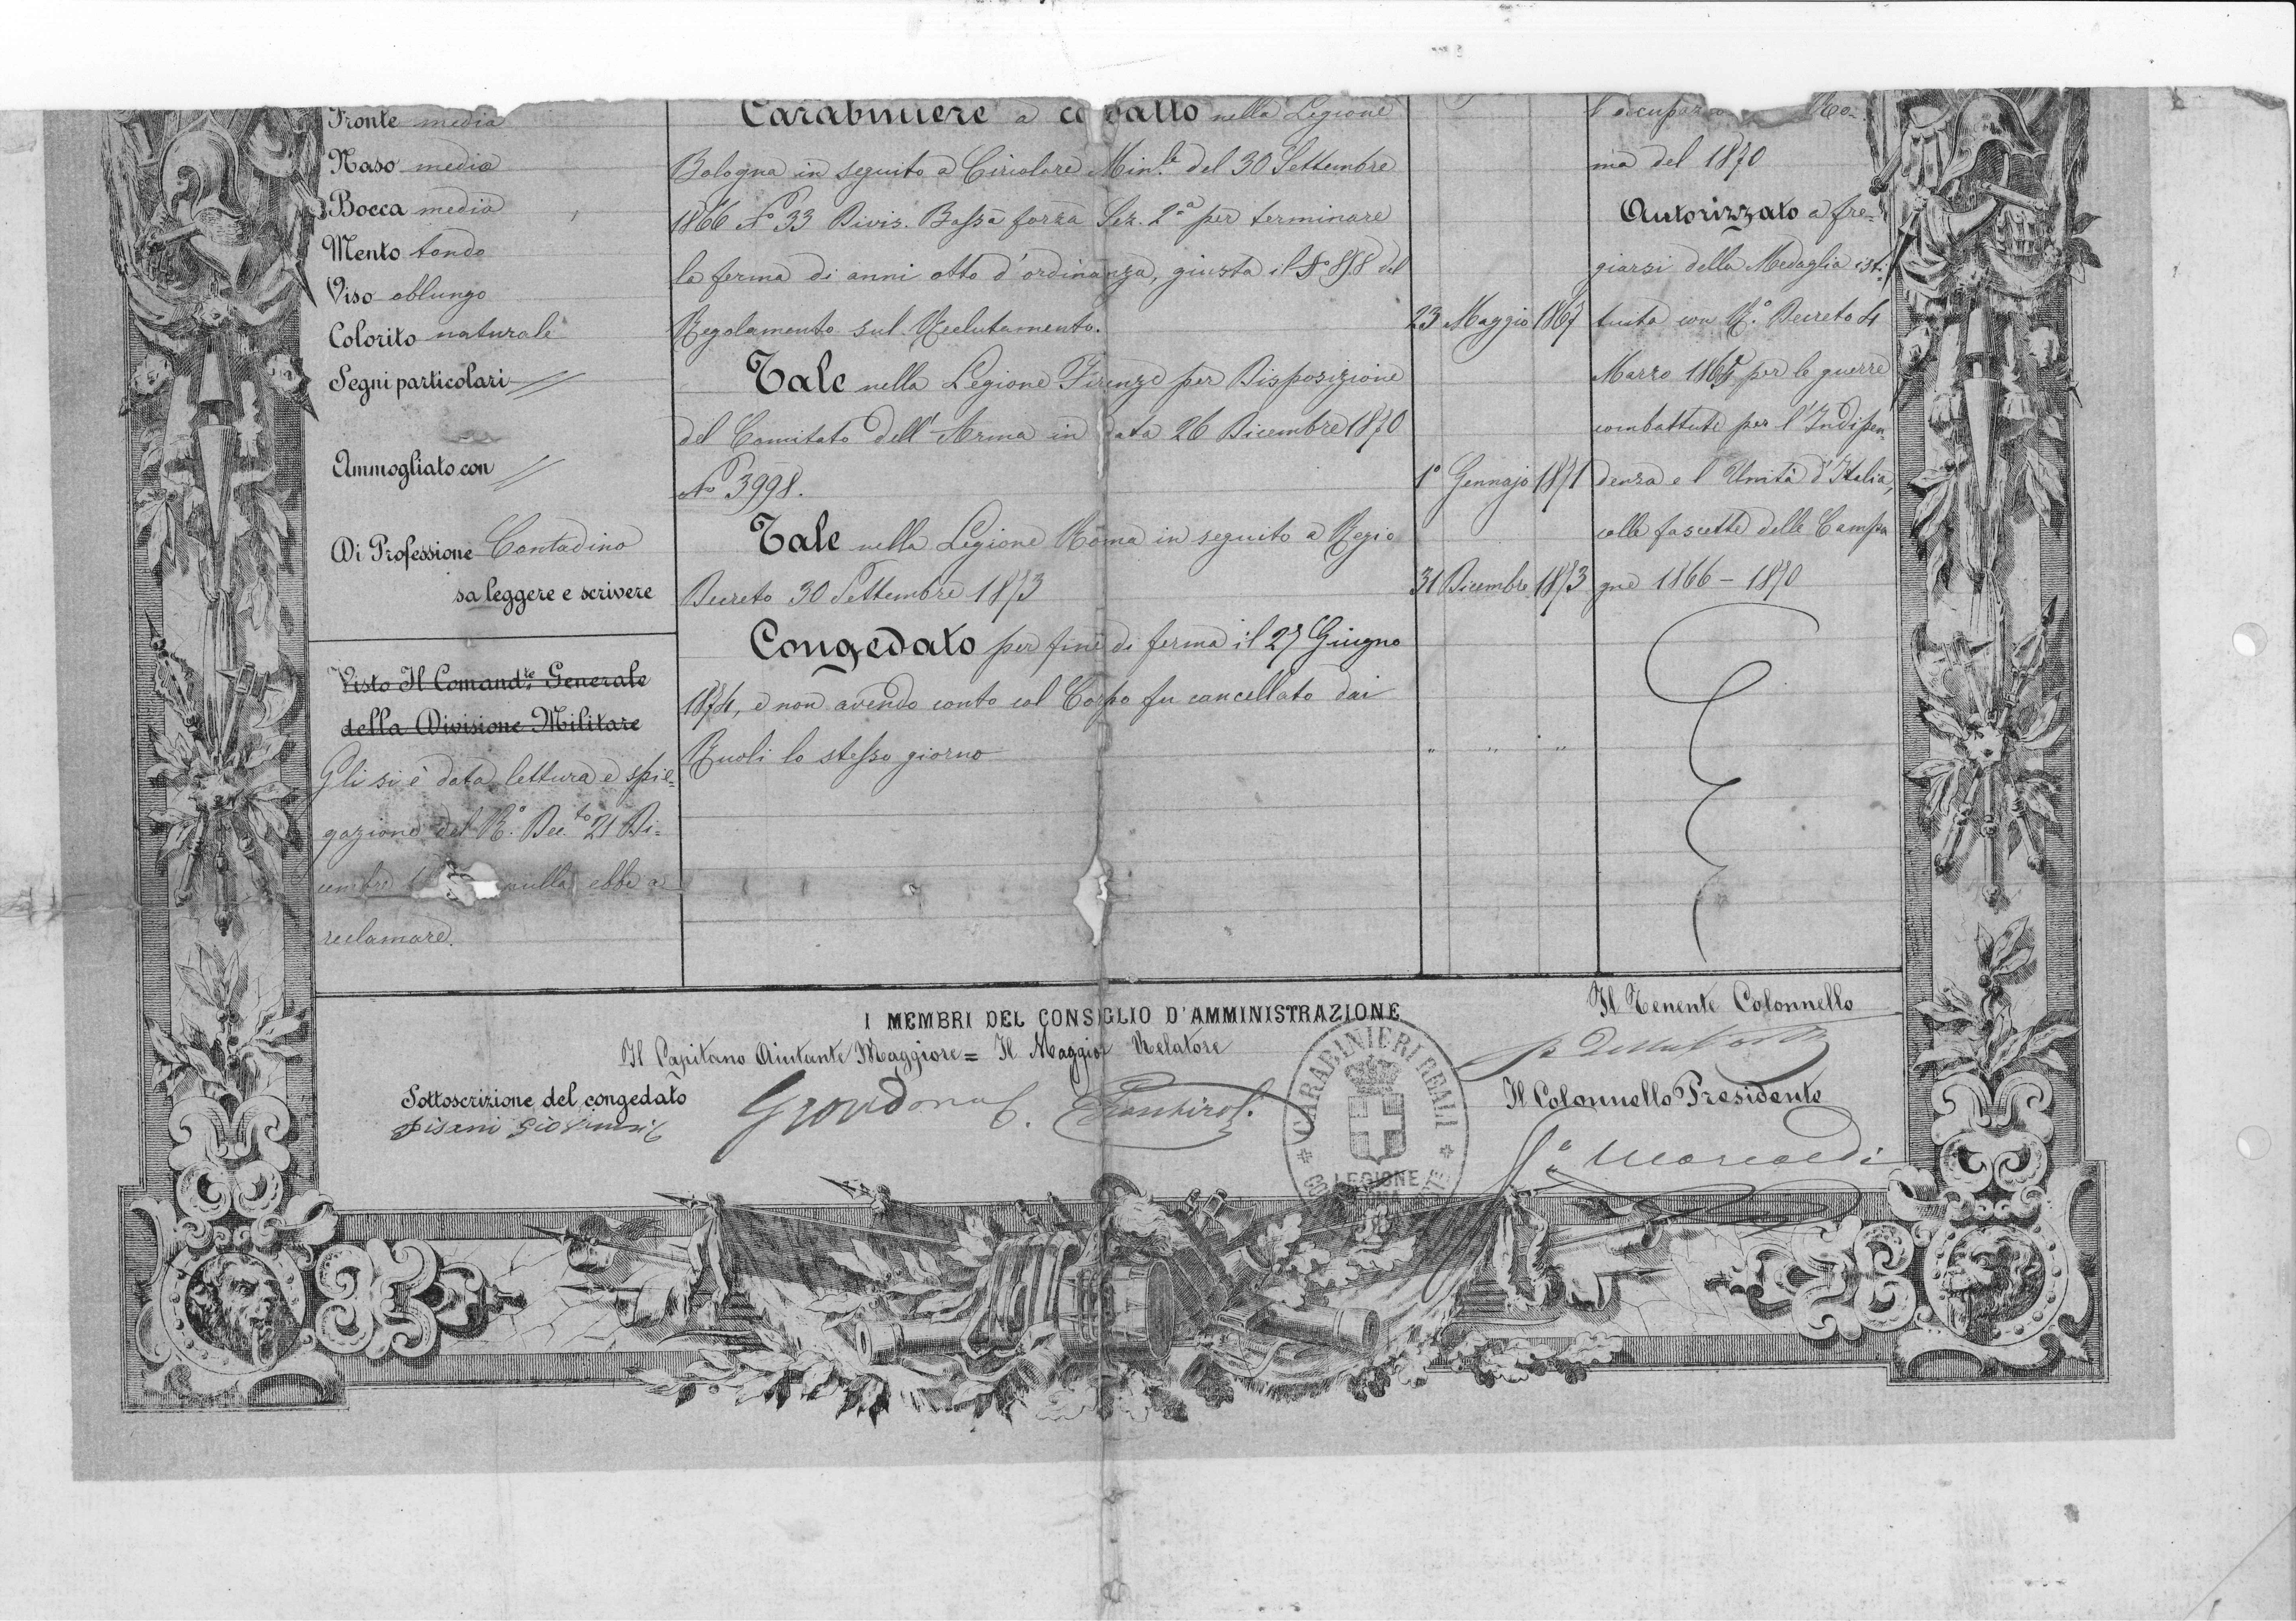 Fronte media
Naso media
Bocca media
Mento tondo
Viso oblungo
Colorito naturale
Segni particolari //
Ammogliato con //
Di Professione Contadino
sa leggere e scrivere
Visto Il Comand.te Generale
della Divisione Militare
Gli si è data lettura e spie=
gazione del R.º Dec.to 21 Di=
cembre nulla ebbe a
reclamare.
Carabiniere a cavallo nella Legione
Bologna in seguito a Circolare Min.le del 30 Settembre
1866 Nº 33 Divis. Bassa forza Sez. 2ª per terminare
la ferma di anni otto d'ordinanza, giusta il § 878 del
Regolamento sul Reclutamento.
23 Maggio 1867
Tale nella Legione Firenze per Disposizione
del Comitato dell'Arma in data 26 Dicembre 1870
Nº 3998.
1º Gennajo 1871
Tale nella Legione Roma in seguito a Regio
Decreto 30 Settembre 1873
31 Dicembre 1873
Congedato per fine di ferma il 27 Giugno
1874, e non avendo conto col Corpo fu cancellato dai
Ruoli lo stesso giorno
" " "
l'occupa Ro=
ma del 1870
Autorizzato a fre=
giarsi della Medaglia isti
tuita con R.º Decreto 4
Marzo 1865 per le guerre
combattute per l'Indipen=
denza e l'Unità d'Italia,
colle fascette delle Campa
gne 1866 - 1870
I MEMBRI DEL CONSIGLIO D'AMMINISTRAZIONE
Il Capitano Aiutante Maggiore = Il Maggior Relatore
Il Tenente Colonnello
Sottoscrizione del congedato
Pisani
Il Colonnello Presidente
CARABINIERI REALI
LEGIONE
ROMA